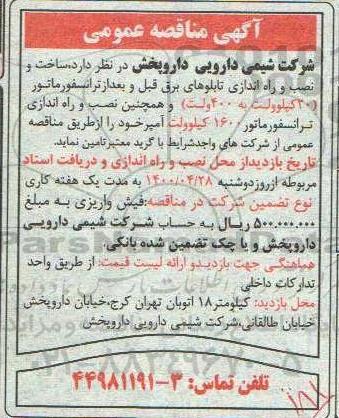 آگهی مناقصه عمومی
شرکت شیمی دارویی داروپخش در نظر دارد،ساخت و
نصب و راه اندازی تابلوهای برق قبل و بعدازترانسفورماتور
(۲۰کیلوولت به ۴۰۰ولت) و همچنین نصب و راه اندازی
ترانسفورماتور ۱۶۰ کیلوولت آمپرخود را ازطریق مناقصه
عمومی از شرکت های واجدشرایط با گرید معتبرتامین نماید.
تاریخ بازدیداز محل نصب و راه اندازی و دریافت اسناد
مربوطه ازروزدوشنبه ۱۴۰۰/۰۴/۲۸ به مدت یک هفته کاری
نوع تضمین شرکت در مناقصه:فیش واریزی به مبلغ
۵۰۰.۰۰۰.۰۰۰ ریال به حساب شرکت شیمی دارویی
داروپخش و یا چک تضمین شده بانکی.
هماهنگی جهت بازدیدو ارائه لیست قیمت: از طریق واحد
تدارکات داخلی
محل بازدید: کیلومتر۱۸ اتوبان تهران کرج،خیابان داروپخش
خیابان طالقانی،شرکت شیمی دارویی داروپخش
تلفن تماس: ۳-۴۴۹۸۱۱۹۱